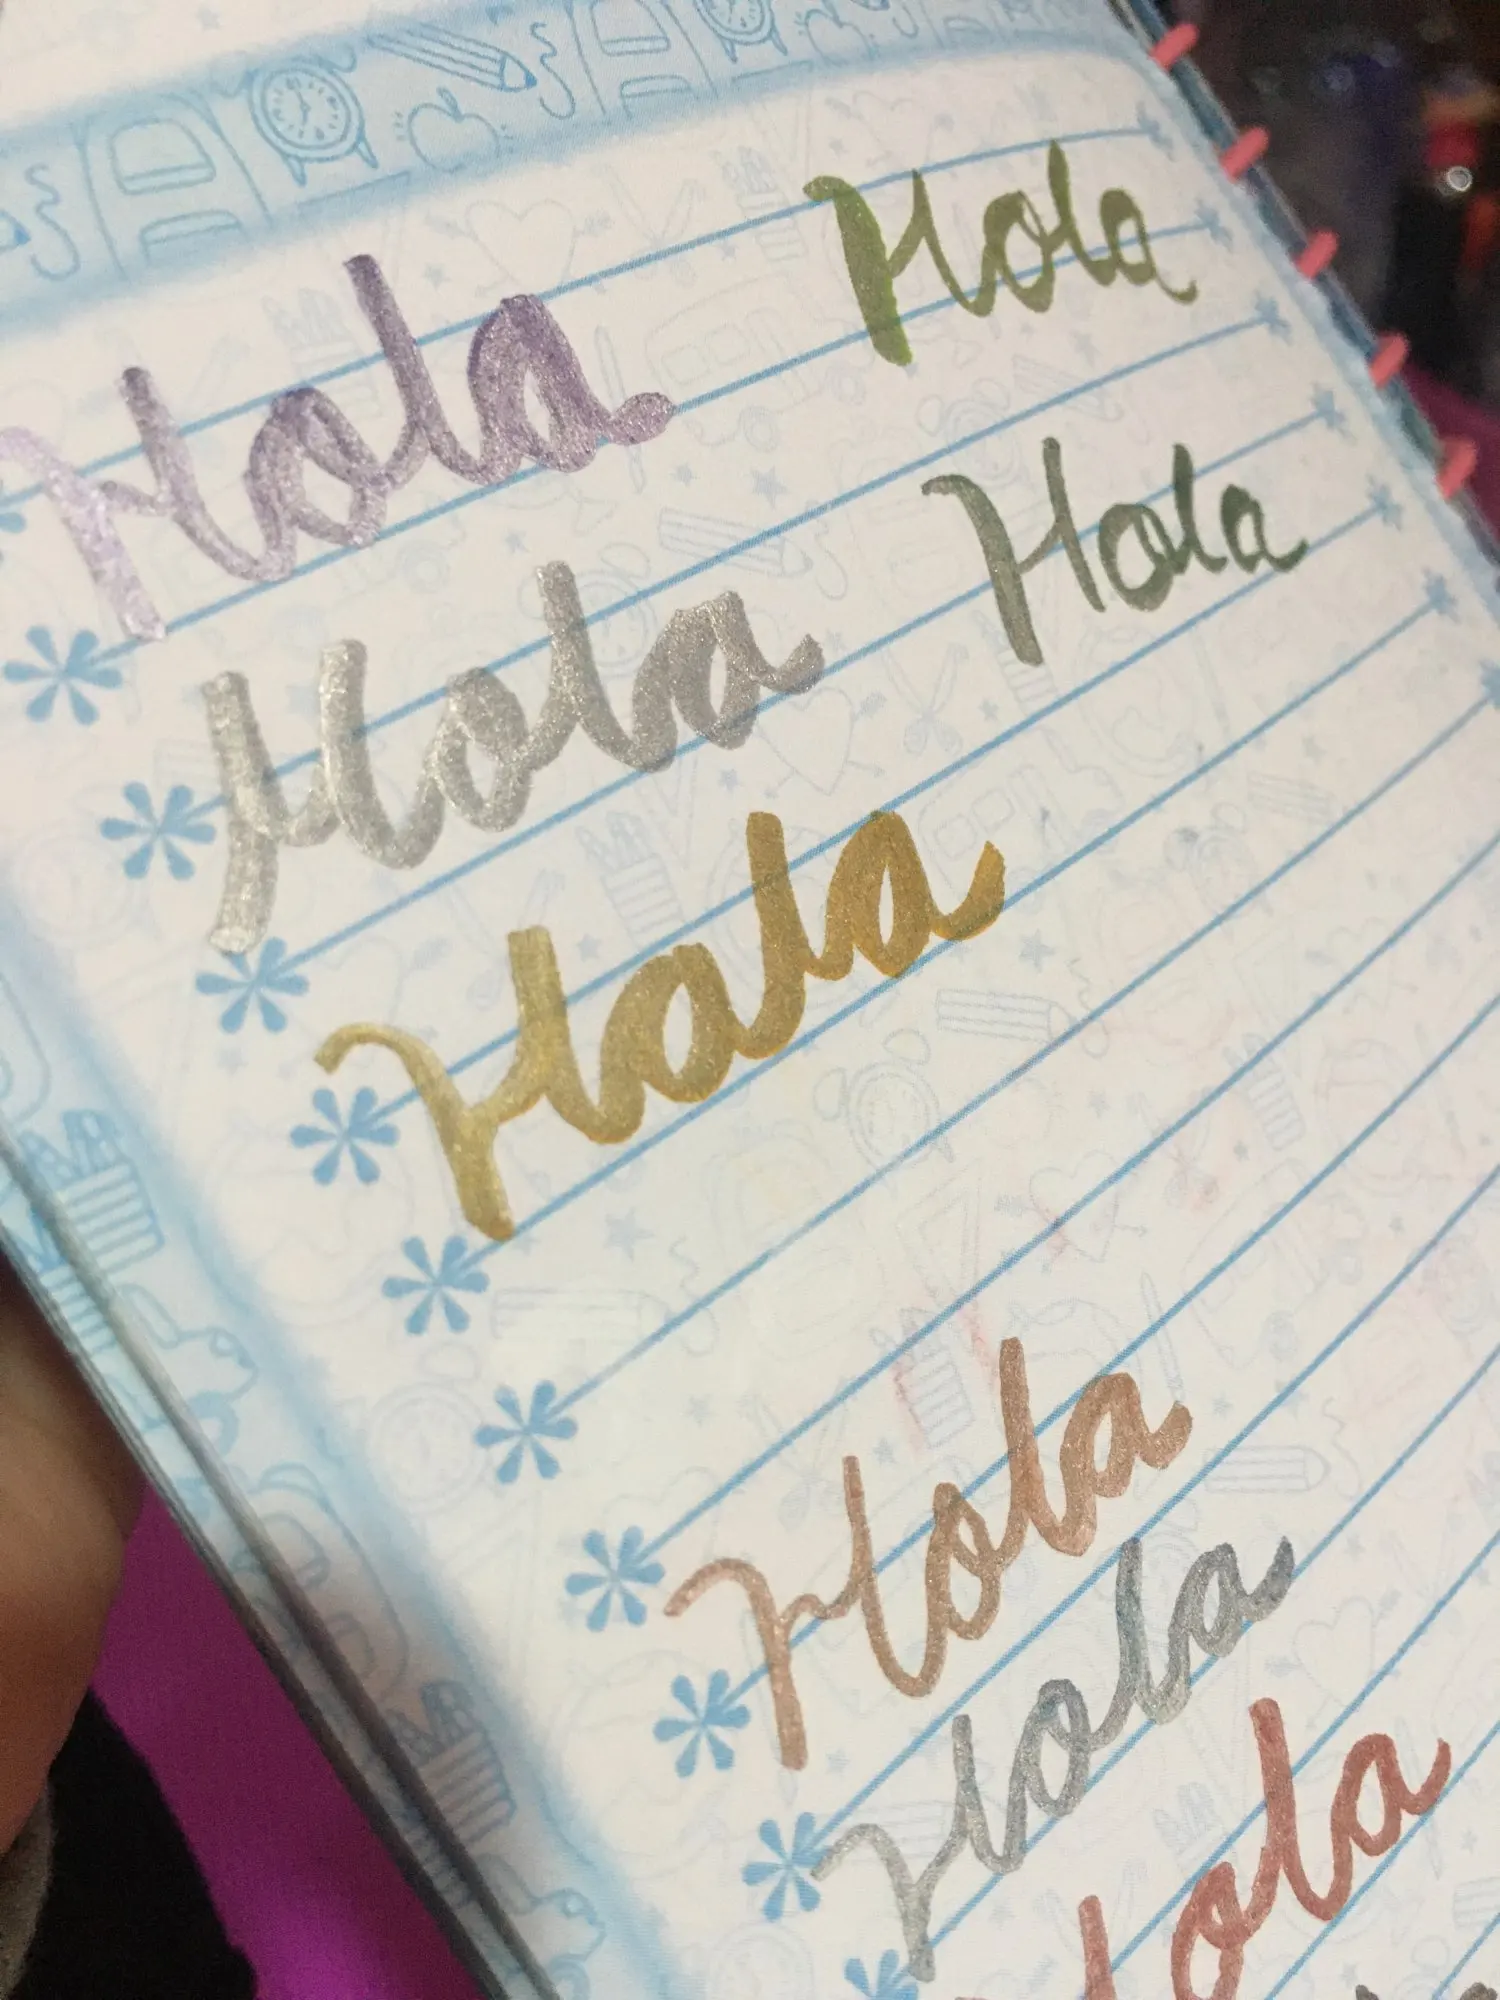 Hola
Hola
Hola
Hola
Hola
Hola
Hola
Hola